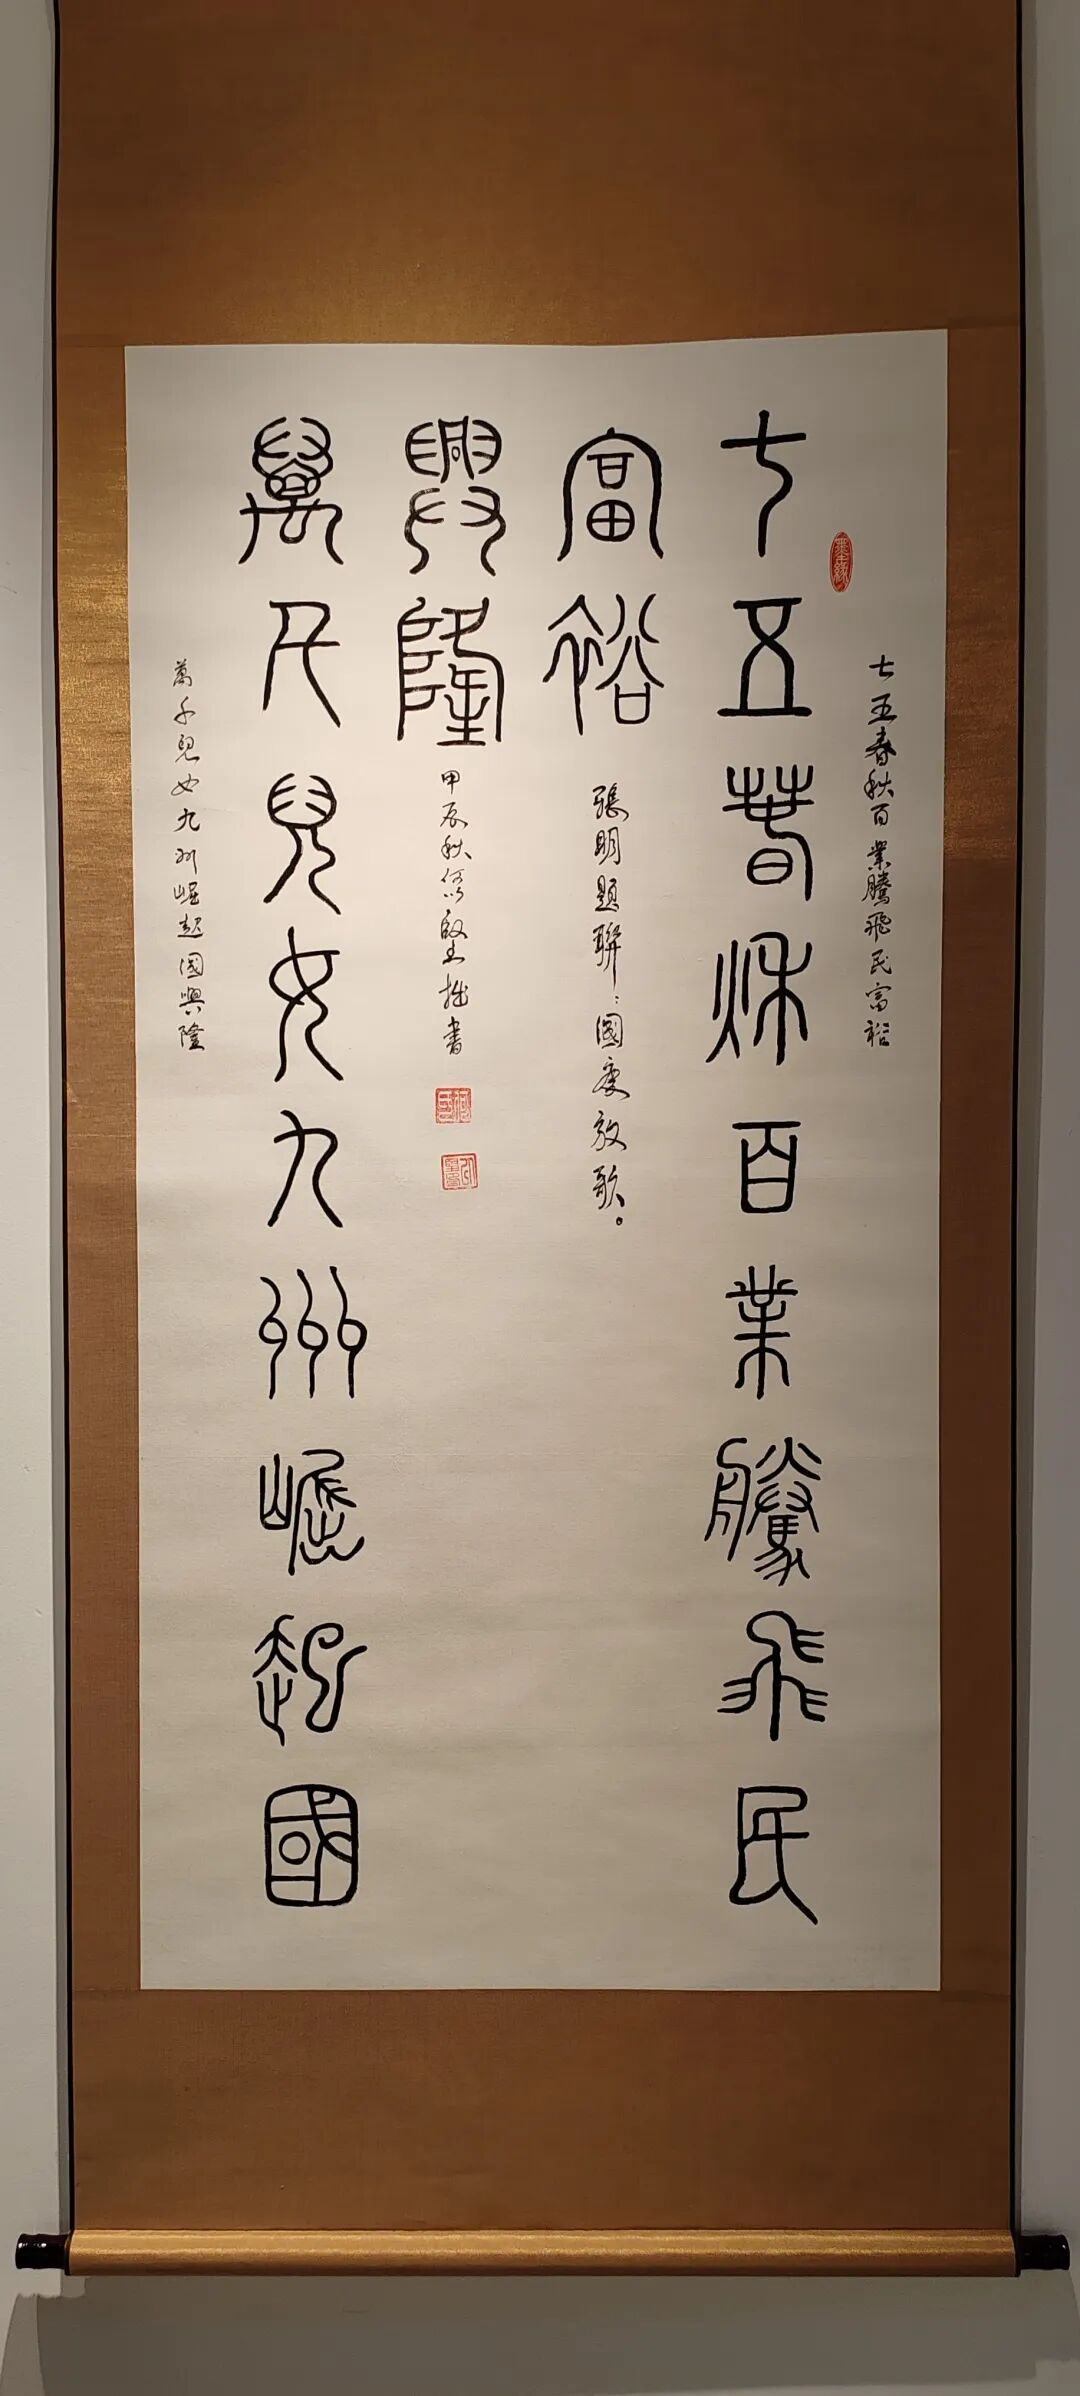 七五春秋百業騰飛民富裕
七五春秋百業騰飛民
富裕
張明題聯：國慶放歌。
興隆
甲辰秋何 拙書
萬千兒女九州崛起國
萬千兒女九州崛起國興隆